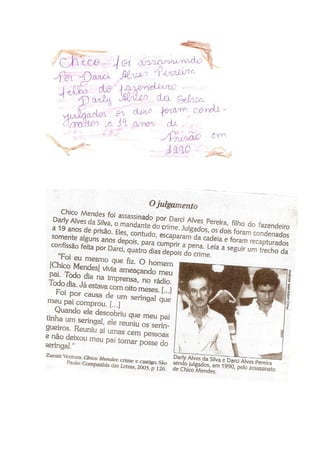 Chico foi assassinado
Por Darci Alves Pereira
filho do fazendeiro
Darly Alves da Selva
julgados os dois foram conde-
nados a 19 anos di
Prisão em
1990
O julgamento
Chico Mendes foi assassinado por Darci Alves Pereira, filho do fazendeiro
Darly Alves da Silva, o mandante do crime. Julgados, os dois foram condenados
a 19 anos de prisão. Eles, contudo, escaparam da cadeia e foram recapturados
somente alguns anos depois, para cumprir a pena. Leia a seguir um trecho da
confissão feita por Darci, quatro dias depois do crime.
"Foi eu mesmo que fiz. O homem
[Chico Mendes] vivia ameaçando meu
pai. Todo dia na imprensa, no rádio.
Todo dia. Já estava com oito meses. [...]
Foi por causa de um seringal que
meu pai comprou. [...]
Quando ele descobriu que meu pai
tinha um seringal, ele reuniu os serin-
gueiros. Reuniu aí umas cem pessoas
e não deixou meu pai tomar posse do
seringal."
Zuenir Ventura. Chico Mendes: crime e castigo. São
Paulo: Companhia das Letras, 2003, p 126.
Darly Alves da Silva e Darci Alves Pereira
sendo julgados, em 1990, pelo assassinato
de Chico Mendes.